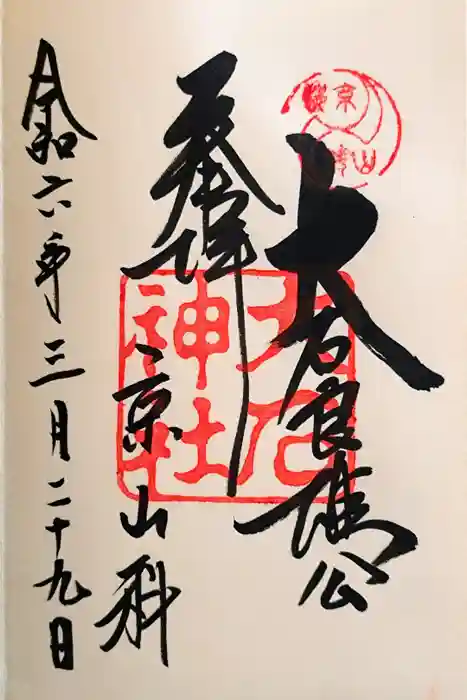 大石良雄公
奉拝
京山科
令和六年三月二十九日
大石神社